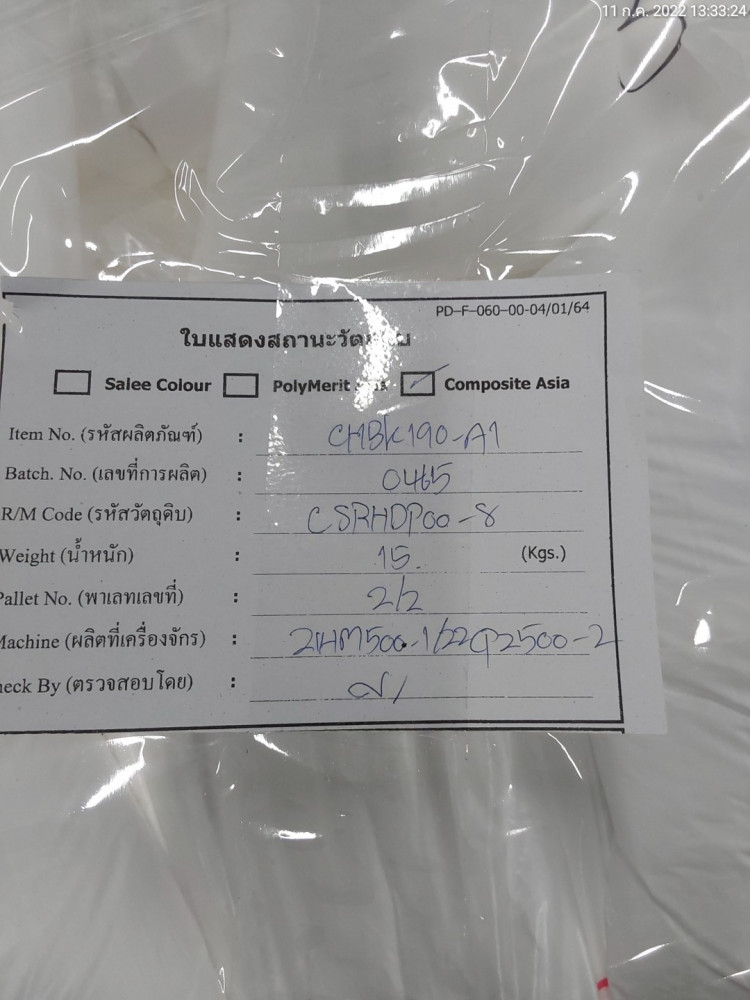 11 ก.ค. 2022 13:33:24
PD-F-060-00-04/01/64
ใบแสดงสถานะวัตถุดิบ
Salee Colour PolyMerit Composite Asia
Item No. (รหัสผลิตภัณฑ์) : CMBK190-A1
Batch. No. (เลขที่การผลิต) : 0465
R/M Code (รหัสวัตถุดิบ) : CSRHDP00-8
Weight (น้ำหนัก) : 15. (Kgs.)
Pallet No. (พาเลทเลขที่) : 2/2
Machine (ผลิตที่เครื่องจักร) :
heck By (ตรวจสอบโดย) :